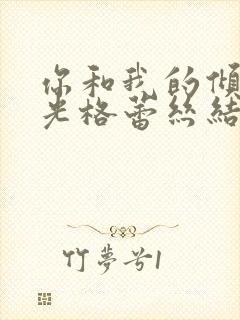 你和我的傾
光格蕾丝結
竹夢兮1